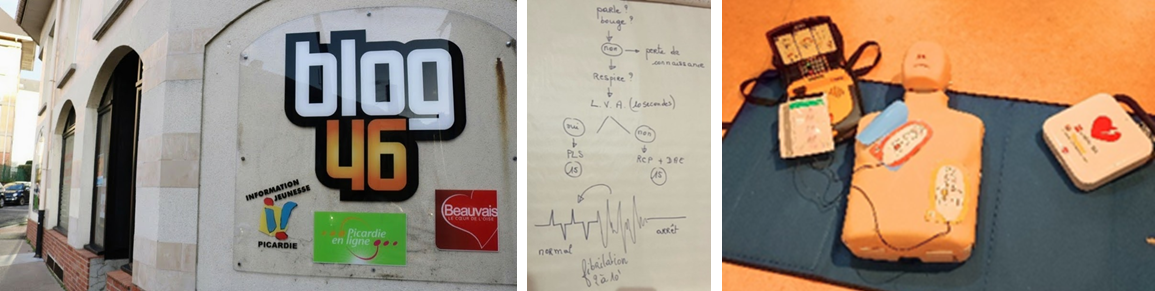 blog
46
INFORMATION
JEUNESSE
PICARDIE
Picardie
en ligne
Beauvais
LE CŒUR DE L'OISE
parle ?
bouge ?
non → perte de
connaissance
Respire ?
L. V. A. (10 secondes)
oui
non
PLS
RCP + DAE
15
15
normal
arrêt
fibrilation